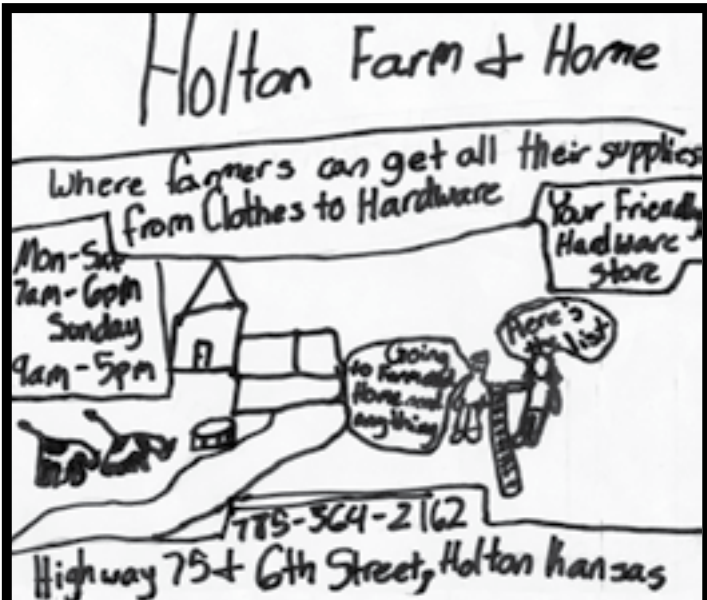 Holton Farm & Home
Where farmers can get all their supplies
from Clothes to Hardware
Your Friendly
Hardware
store
Mon-Sat
7am-6pm
Sunday
9am-5pm
Going
to Farm and
Home need
anything
Here's
the list
785-364-2162
Highway 75 & 6th Street, Holton Kansas